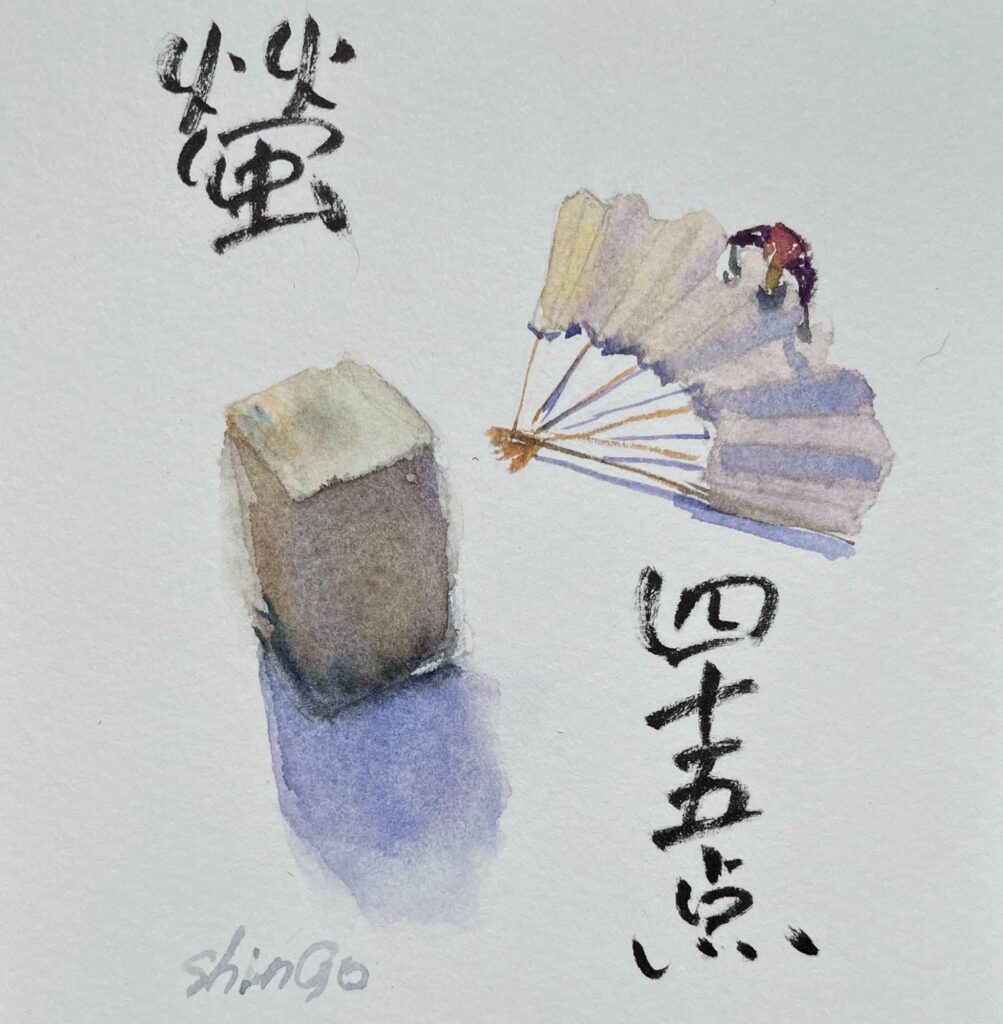 螢
四十五点
shinGo